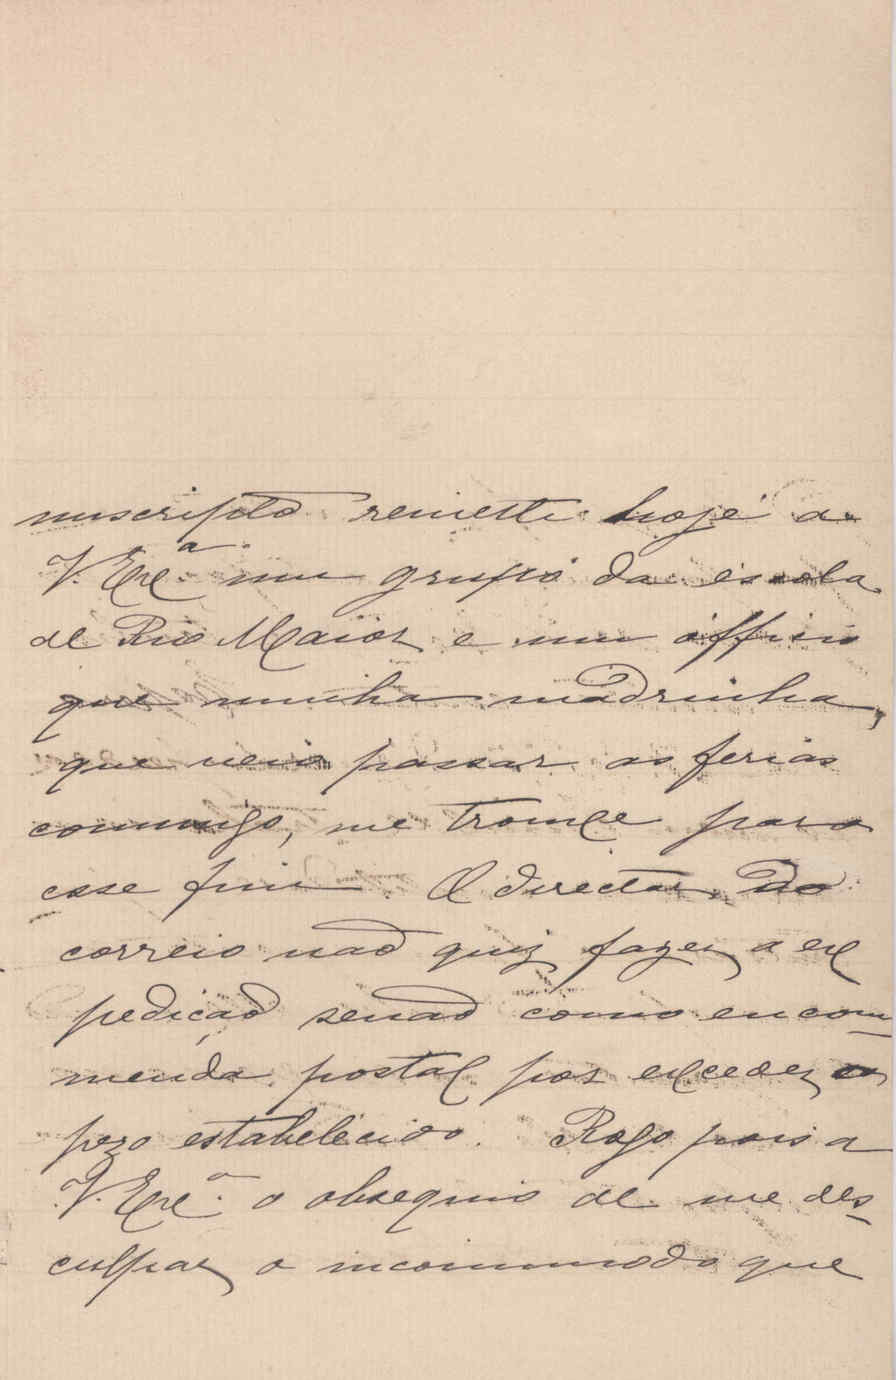 nuscripto remetti hoje a
V. Exc.ª um grupo da escola
de Rio Maior e um officio
que minha madrinha,
que veio passar as ferias
commigo, me trouxe para
esse fim. O director do
correio não quiz fazer a ex
pedição senão como encom-
menda postal por exceder o
pezo estabelecido. Rogo pois a
V. Exc.ª o obsequio de me des-
culpar o incommodo que